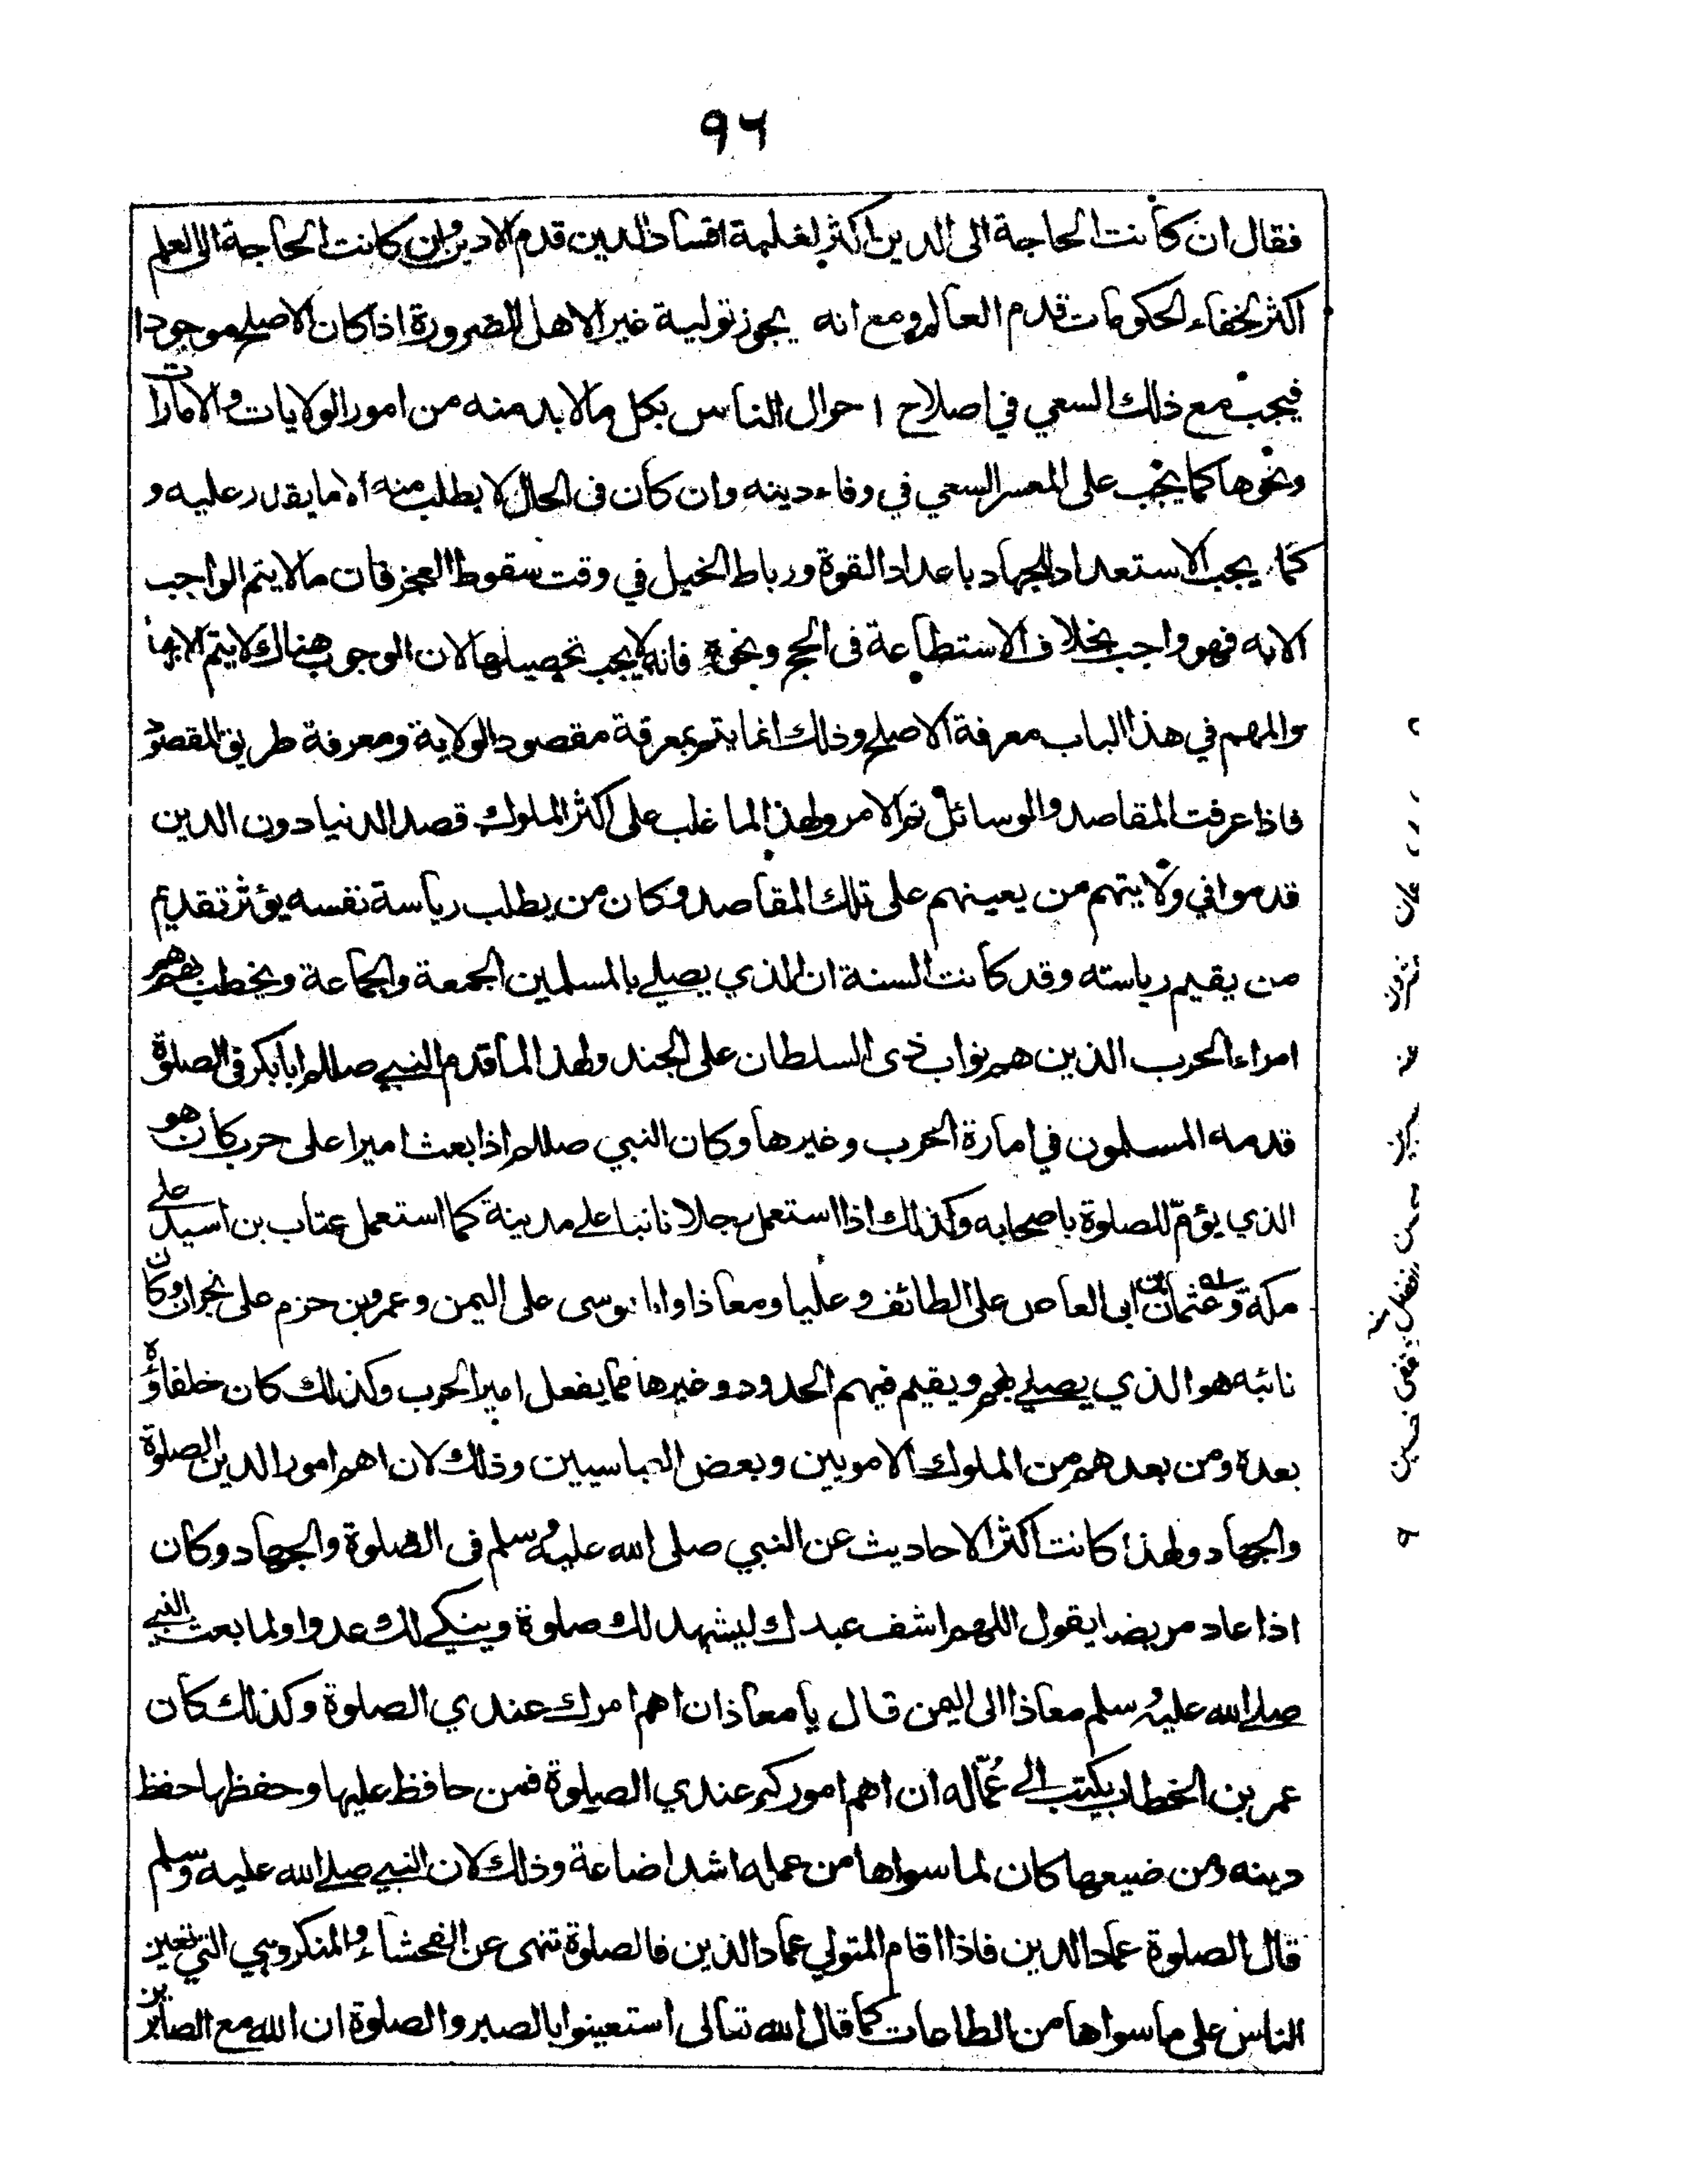 ۹۶
فقال ان كانت الحاجة الى الدين اكثر لغلبة افساد الدين قدم الادين وان كانت الحاجة الى العلم
اكثر لخفاء الحكومات قدم العالم ومع انه يجوز تولية غير الاهل للضرورة اذا كان الاصلح موجودا
فيجب مع ذلك السعي في اصلاح احوال الناس بكل ما لا بد منه من امور الولايات والامارات
ونحوها كما يجب على المعسر السعي في وفاء دينه وان كان فى الحال لا يطلب منه الا ما يقدر عليه و
كما يجب الاستعداد للجهاد باعداد القوة ورباط الخيل في وقت سقوط العجز فان ما لا يتم الواجب
الا به فهو واجب بخلاف الاستطاعة فى الحج ونحوه فانه لا يجب تحصيلها لان الوجوب هناك لا يتم الا بها
والمهم في هذا الباب معرفة الاصلح وذلك انما يتم بمعرفة مقصود الولاية ومعرفة طريق المقصود
فاذا عرفت المقاصد والوسائل تم الامر ولهذا لما غلب على اكثر الملوك قصد الدنيا دون الدين
قدموا في ولايتهم من يعينهم على تلك المقاصد وكان من يطلب رياسة نفسه يؤثر تقديم
من يقيم رياسته وقد كانت السنة ان الذي يصلے بالمسلمين الجمعة والجماعة ويخطب بهم هم
امراء الحرب الذين هم نواب ذى السلطان على الجند ولهذا لما قدم النبے صللم ابا بكر فى الصلوة
قدمه المسلمون في امارة الحرب وغيرها وكان النبي صللم اذا بعث اميرا على حرب كان هو
الذي يؤمّ للصلوة باصحابه وكذلك اذا استعمل رجلا نائبا علے مدينة كما استعمل عتاب بن اسيد علے
مكة وعثمان بن ابى العاص على الطائف وعليا ومعاذا وابا موسى على اليمن وعمرو بن حزم على نجران وكان
نائبه هو الذي يصلے بهم ويقيم فيهم الحدود وغيرها مما يفعل امير الحرب وكذلك كان خلفاؤه
بعده ومن بعدهم من الملوك الامويين وبعض العباسيين وذلك لان اهم امور الدين الصلوة
والجهاد ولهذا كانت اكثر الاحاديث عن النبي صلى الله عليه وسلم فى الصلوة والجهاد وكان
اذا عاد مريضا يقول اللهم اشف عبدك ليشهد لك صلوة وينكے لك عدوا ولما بعث النبے
صلے الله عليه وسلم معاذا الى اليمن قال يا معاذ ان اهم امرك عندي الصلوة وكذلك كان
عمر بن الخطاب يكتب الے عُمّاله ان اهم اموركم عندي الصلوة فمن حافظ عليها وحفظها حفظ
دينه ومن ضيعها كان لما سواها من عمله اشد اضاعة وذلك لان النبے صلے الله عليه وسلم
قال الصلوة عماد الدين فاذا اقام المتولي عماد الدين فالصلوة تنهى عن الفحشاء والمنكر وهي التي تعين
الناس على ما سواها من الطاعات كما قال الله تعالى استعينوا بالصبر والصلوة ان الله مع الصابرين